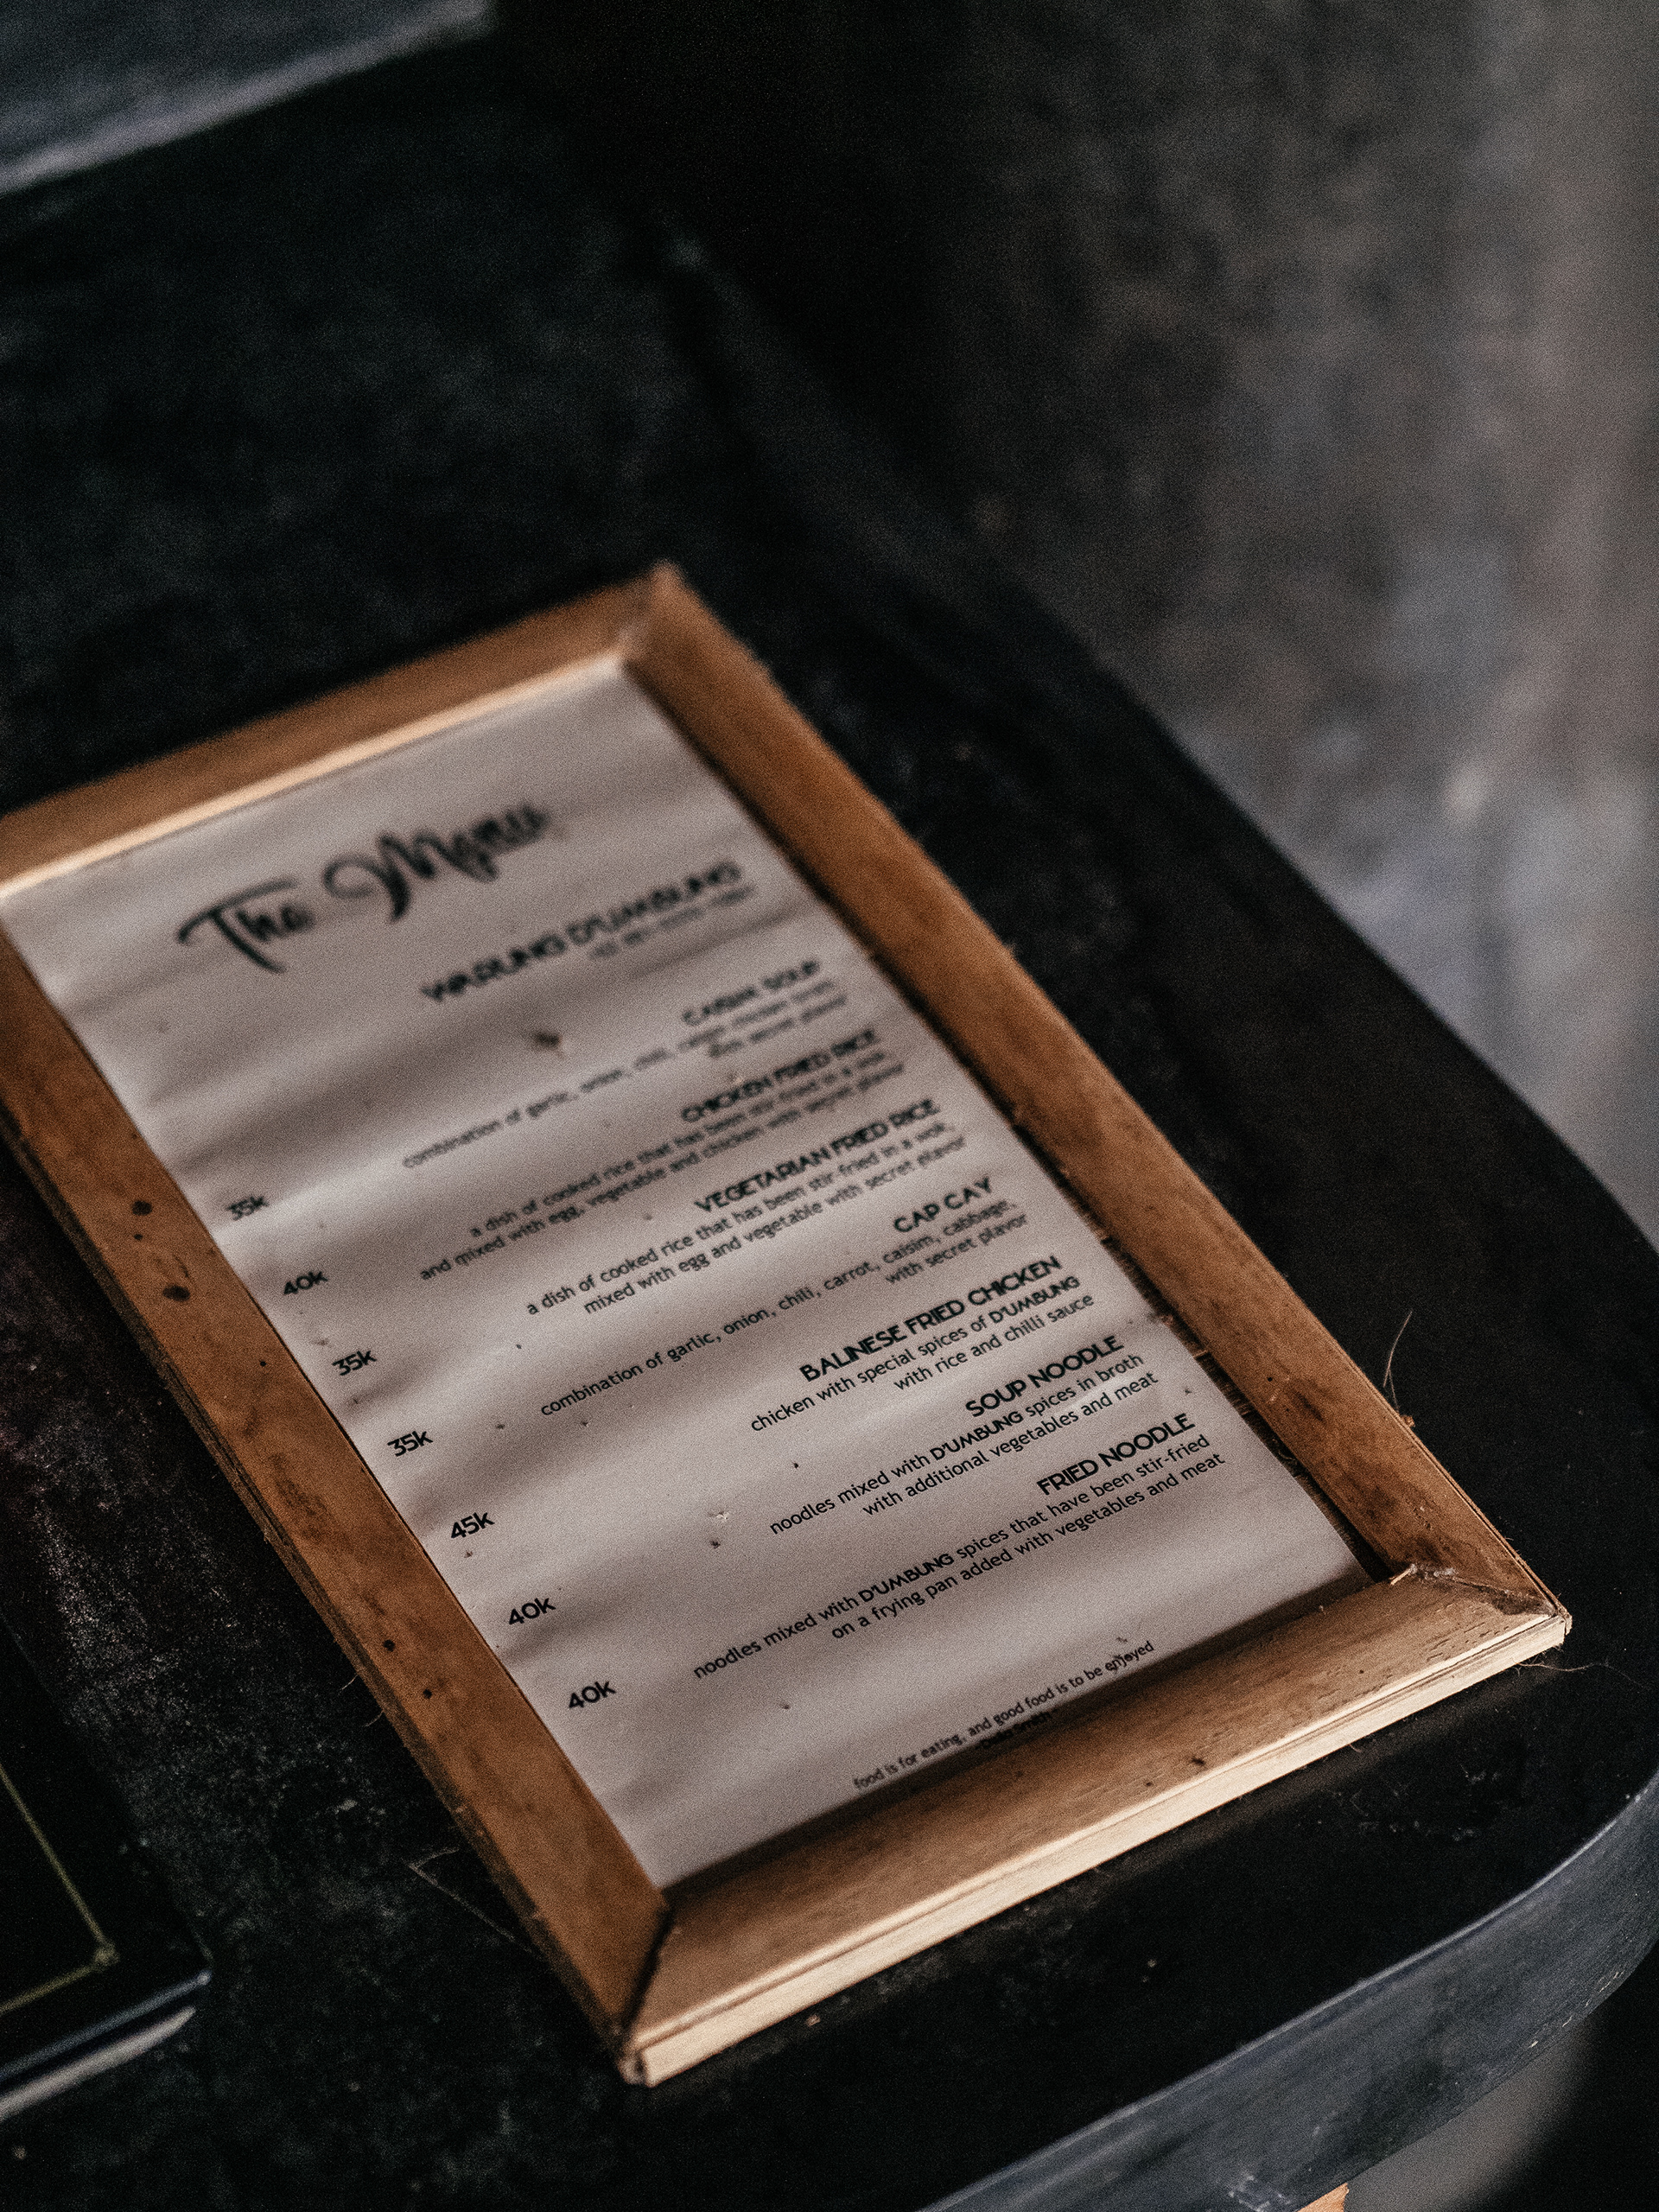 The Menu
WARUNG D'UMBUNG
CAISIM SOUP
combination of garlic, onion, chili,
with secret plavor
35k
CHICKEN FRIED RICE
a dish of cooked rice that has been stir fried in a wok,
and mixed with egg, vegetable and chicken with secret plavor
40k
VEGETARIAN FRIED RICE
a dish of cooked rice that has been stir-fried in a wok,
mixed with egg and vegetable with secret plavor
35k
CAP CAY
combination of garlic, onion, chili, carrot, caisim, cabbage,
with secret plavor
35k
BALINESE FRIED CHICKEN
chicken with special spices of D'UMBUNG
with rice and chilli sauce
45k
SOUP NOODLE
noodles mixed with D'UMBUNG spices in broth
with additional vegetables and meat
40k
FRIED NOODLE
noodles mixed with D'UMBUNG spices that have been stir-fried
on a frying pan added with vegetables and meat
40k
food is for eating, and good food is to be enjoyed